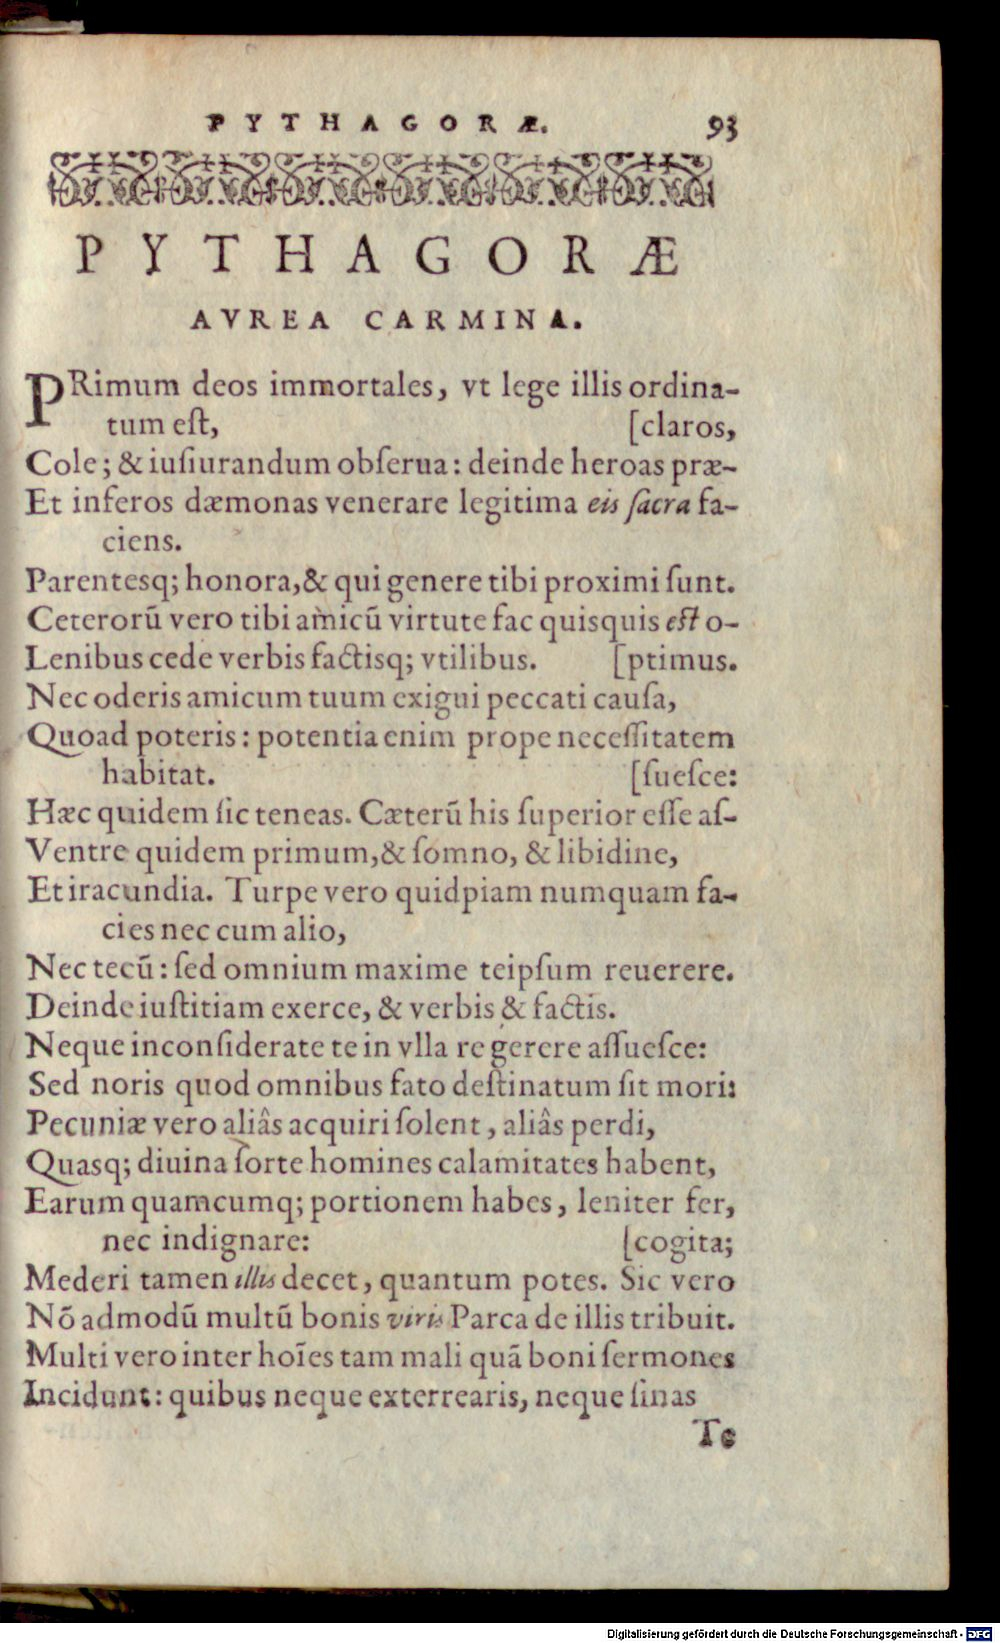 PYTHAGORÆ. 93
PYTHAGORÆ
AVREA CARMINA.
PRimum deos immortales, vt lege illis ordina-
tum eſt, [claros,
Cole; & iuſiurandum obſerua: deinde heroas præ-
Et inferos dæmonas venerare legitima eis ſacra fa-
ciens.
Parentesq; honora, & qui genere tibi proximi ſunt.
Ceterorũ vero tibi amicũ virtute fac quisquis eſt o-
Lenibus cede verbis factisq; vtilibus. [ptimus.
Nec oderis amicum tuum exigui peccati cauſa,
Quoad poteris: potentia enim prope neceſſitatem
habitat. [ſueſce:
Hæc quidem ſic teneas. Cæterũ his ſuperior eſſe aſ-
Ventre quidem primum, & ſomno, & libidine,
Et iracundia. Turpe vero quidpiam numquam fa-
cies nec cum alio,
Nec tecũ: ſed omnium maxime teipſum reuerere.
Deinde iuſtitiam exerce, & verbis & factis.
Neque inconſiderate te in vlla re gerere aſſueſce:
Sed noris quod omnibus fato deſtinatum ſit mori:
Pecuniæ vero aliâs acquiri ſolent, aliâs perdi,
Quasq; diuina ſorte homines calamitates habent,
Earum quamcumq; portionem habes, leniter fer,
nec indignare: [cogita;
Mederi tamen illis decet, quantum potes. Sic vero
Nõ admodũ multũ bonis viris Parca de illis tribuit.
Multi vero inter hoĩes tam mali quã boni ſermones
Incidunt: quibus neque exterrearis, neque ſinas
Te
Digitalisierung gefördert durch die Deutsche Forschungsgemeinschaft - DFG